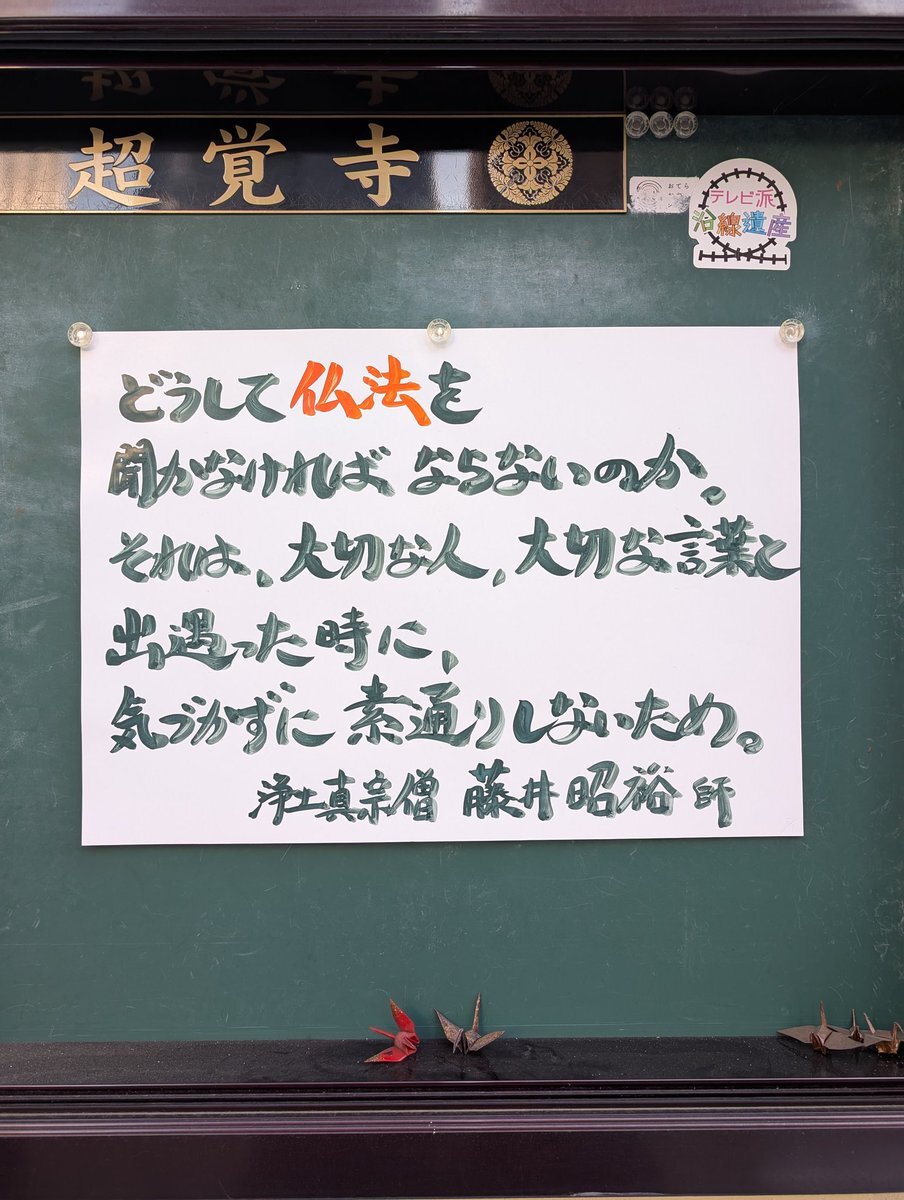 超覚寺
おてら
テレビ派
沿線遺産
どうして仏法を
聞かなければ ならないのか。
それは、大切な人、大切な言葉と
出遇った時に、
気づかずに 素通りしないため。
浄土真宗僧 藤井昭裕 師